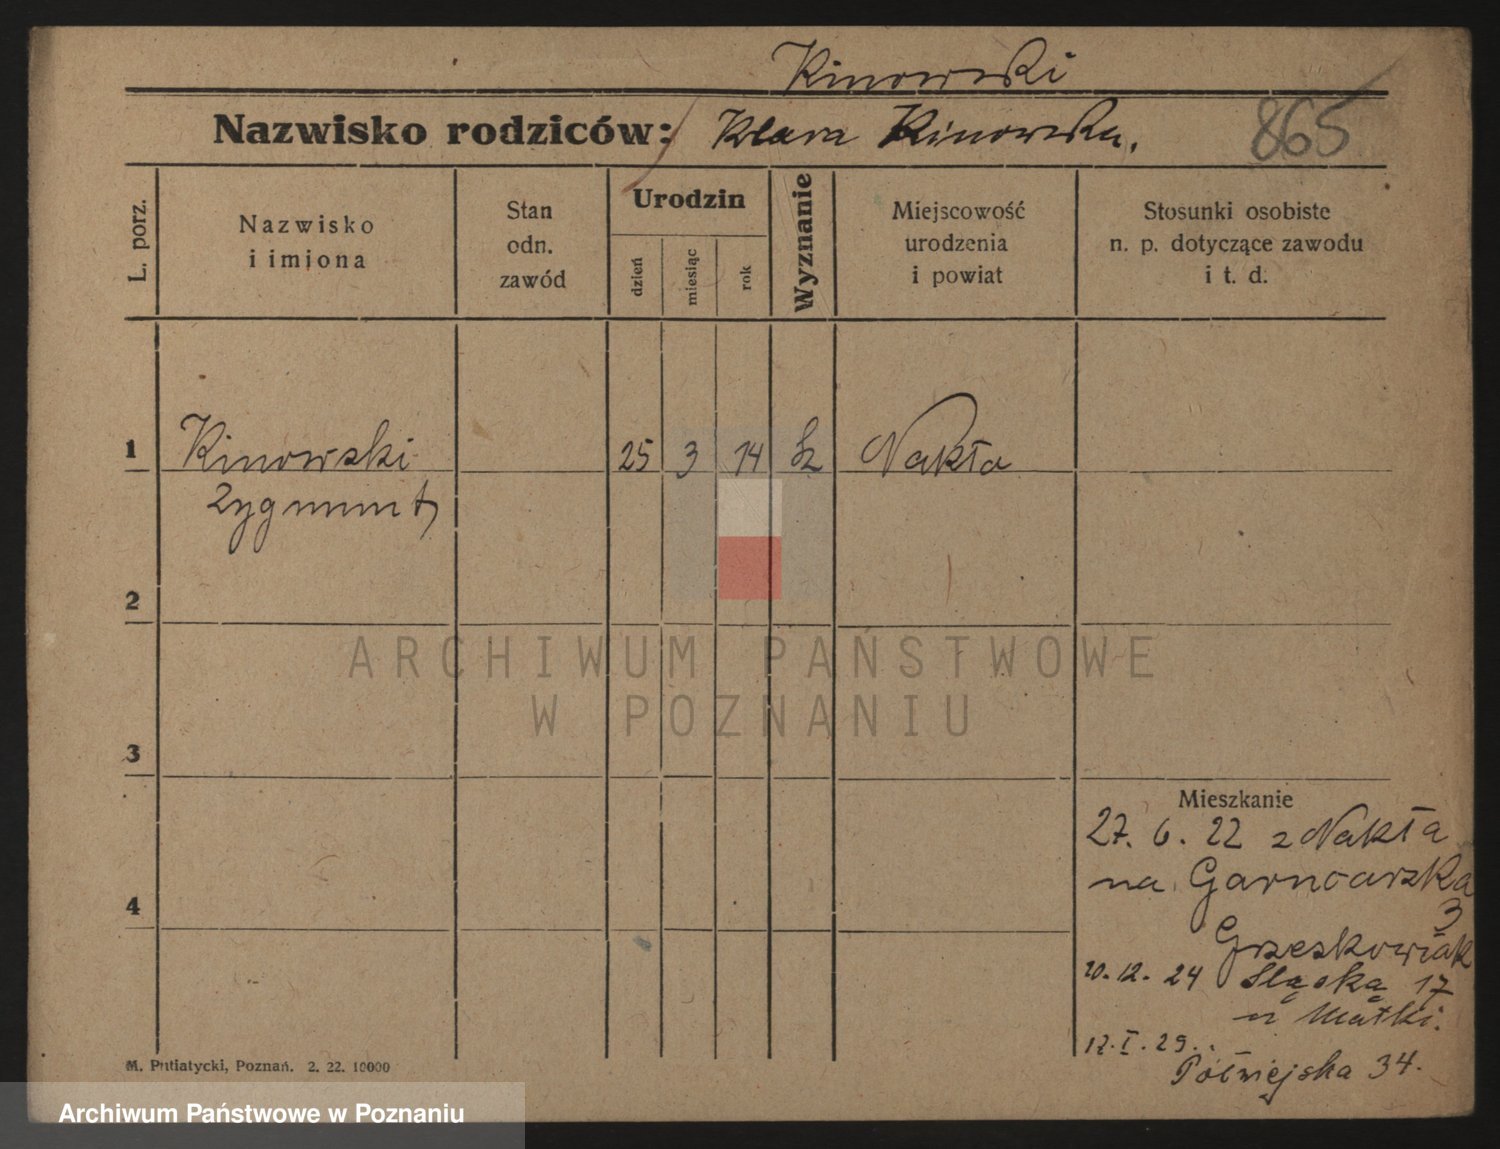 Kinowski
Nazwisko rodziców: Klara Kinowska.
865
L. porz.
Nazwisko
i imiona
Stan
odn.
zawód
Urodzin
dzień
miesiąc
rok
Wyznanie
Miejscowość
urodzenia
i powiat
Stosunki osobiste
n. p. dotyczące zawodu
i t. d.
1
Kinowski
Zygmunt
25
3
14
Nakło
2
3
4
ARCHIWUM PAŃSTWOWE
W POZNANIU
Mieszkanie
27. 6. 22 z Nakła
na Garncarska
3
Grzeskowiak
20. 12. 24 Śląska 17
u Matki.
Półwiejska 34.
M. Putiatycki, Poznań. 2. 22. 10000
Archiwum Państwowe w Poznaniu